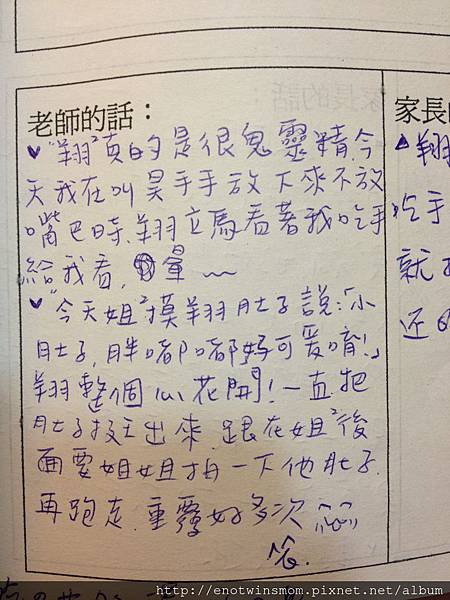 老師的話：
♥"翔"真的是很鬼靈精,今
天我在叫昊手手放下來不放
嘴巴時.翔立馬看著我吃手
給我看,暈～
♥"今天姐²摸翔肚子說:「小
肚子,胖嘟嘟好可愛唷!」
翔整個心花開!一直把
肚子挺出來.跟在姐²後
面要姐姐拍一下他肚子.
再跑走.重覆好多次
家長的
▲翔
吃手
就
还
http://enotwinsmom.pixnet.net/album